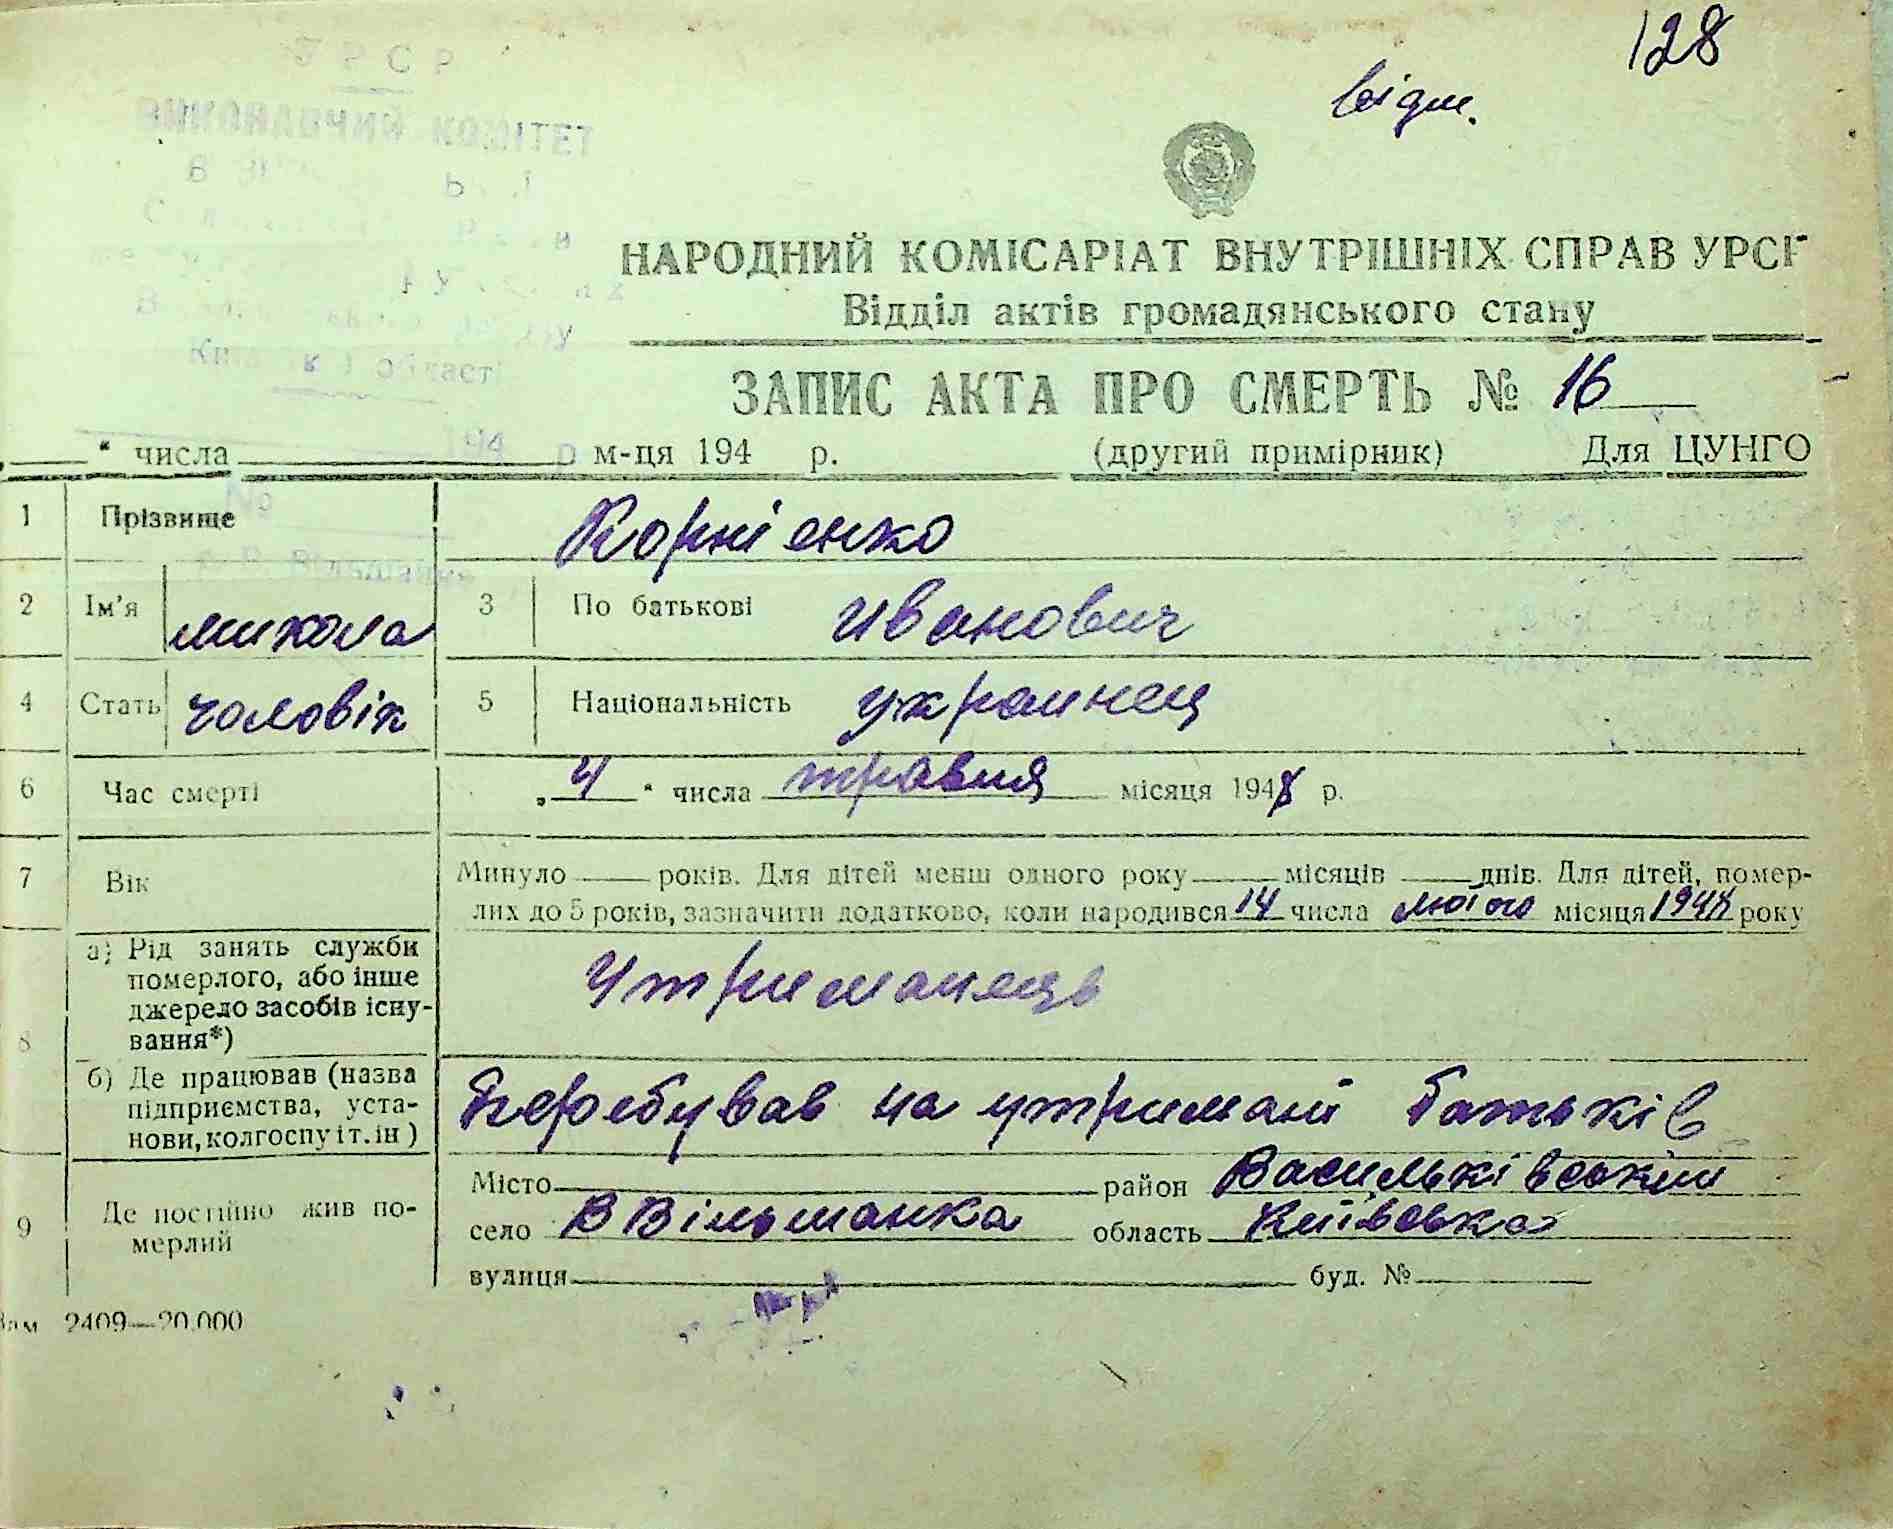 128
відм.
УРСР
ВИКОНАВЧИЙ КОМІТЕТ
НАРОДНИЙ КОМІСАРІАТ ВНУТРІШНІХ СПРАВ УРСР
Відділ актів громадянського стану
ЗАПИС АКТА ПРО СМЕРТЬ № 16
" числа м-ця 194 р. (другий примірник) Для ЦУНГО
1 Прізвище Корнієнко
2 Ім'я микола 3 По батькові иванович
4 Стать чоловік 5 Національність украинец
6 Час смерті „ 4 " числа травня місяця 1948 р.
7 Вік Минуло років. Для дітей менш одного року місяців днів. Для дітей, помер-
лих до 5 років, зазначити додатково, коли народився 14 числа лютого місяця 1948 року
8 а) Рід занять служби
померлого, або інше
джерело засобів існу-
вання*) Утриманець
б) Де працював (назва
підприємства, уста-
нови, колгоспу і т. ін) Перебував на утримані батьків
9 Де постійно жив по-
мерлий
Місто район Васильківський
село В Вільшанка область Київська
вулиця буд. №
Зам 2409—20.000